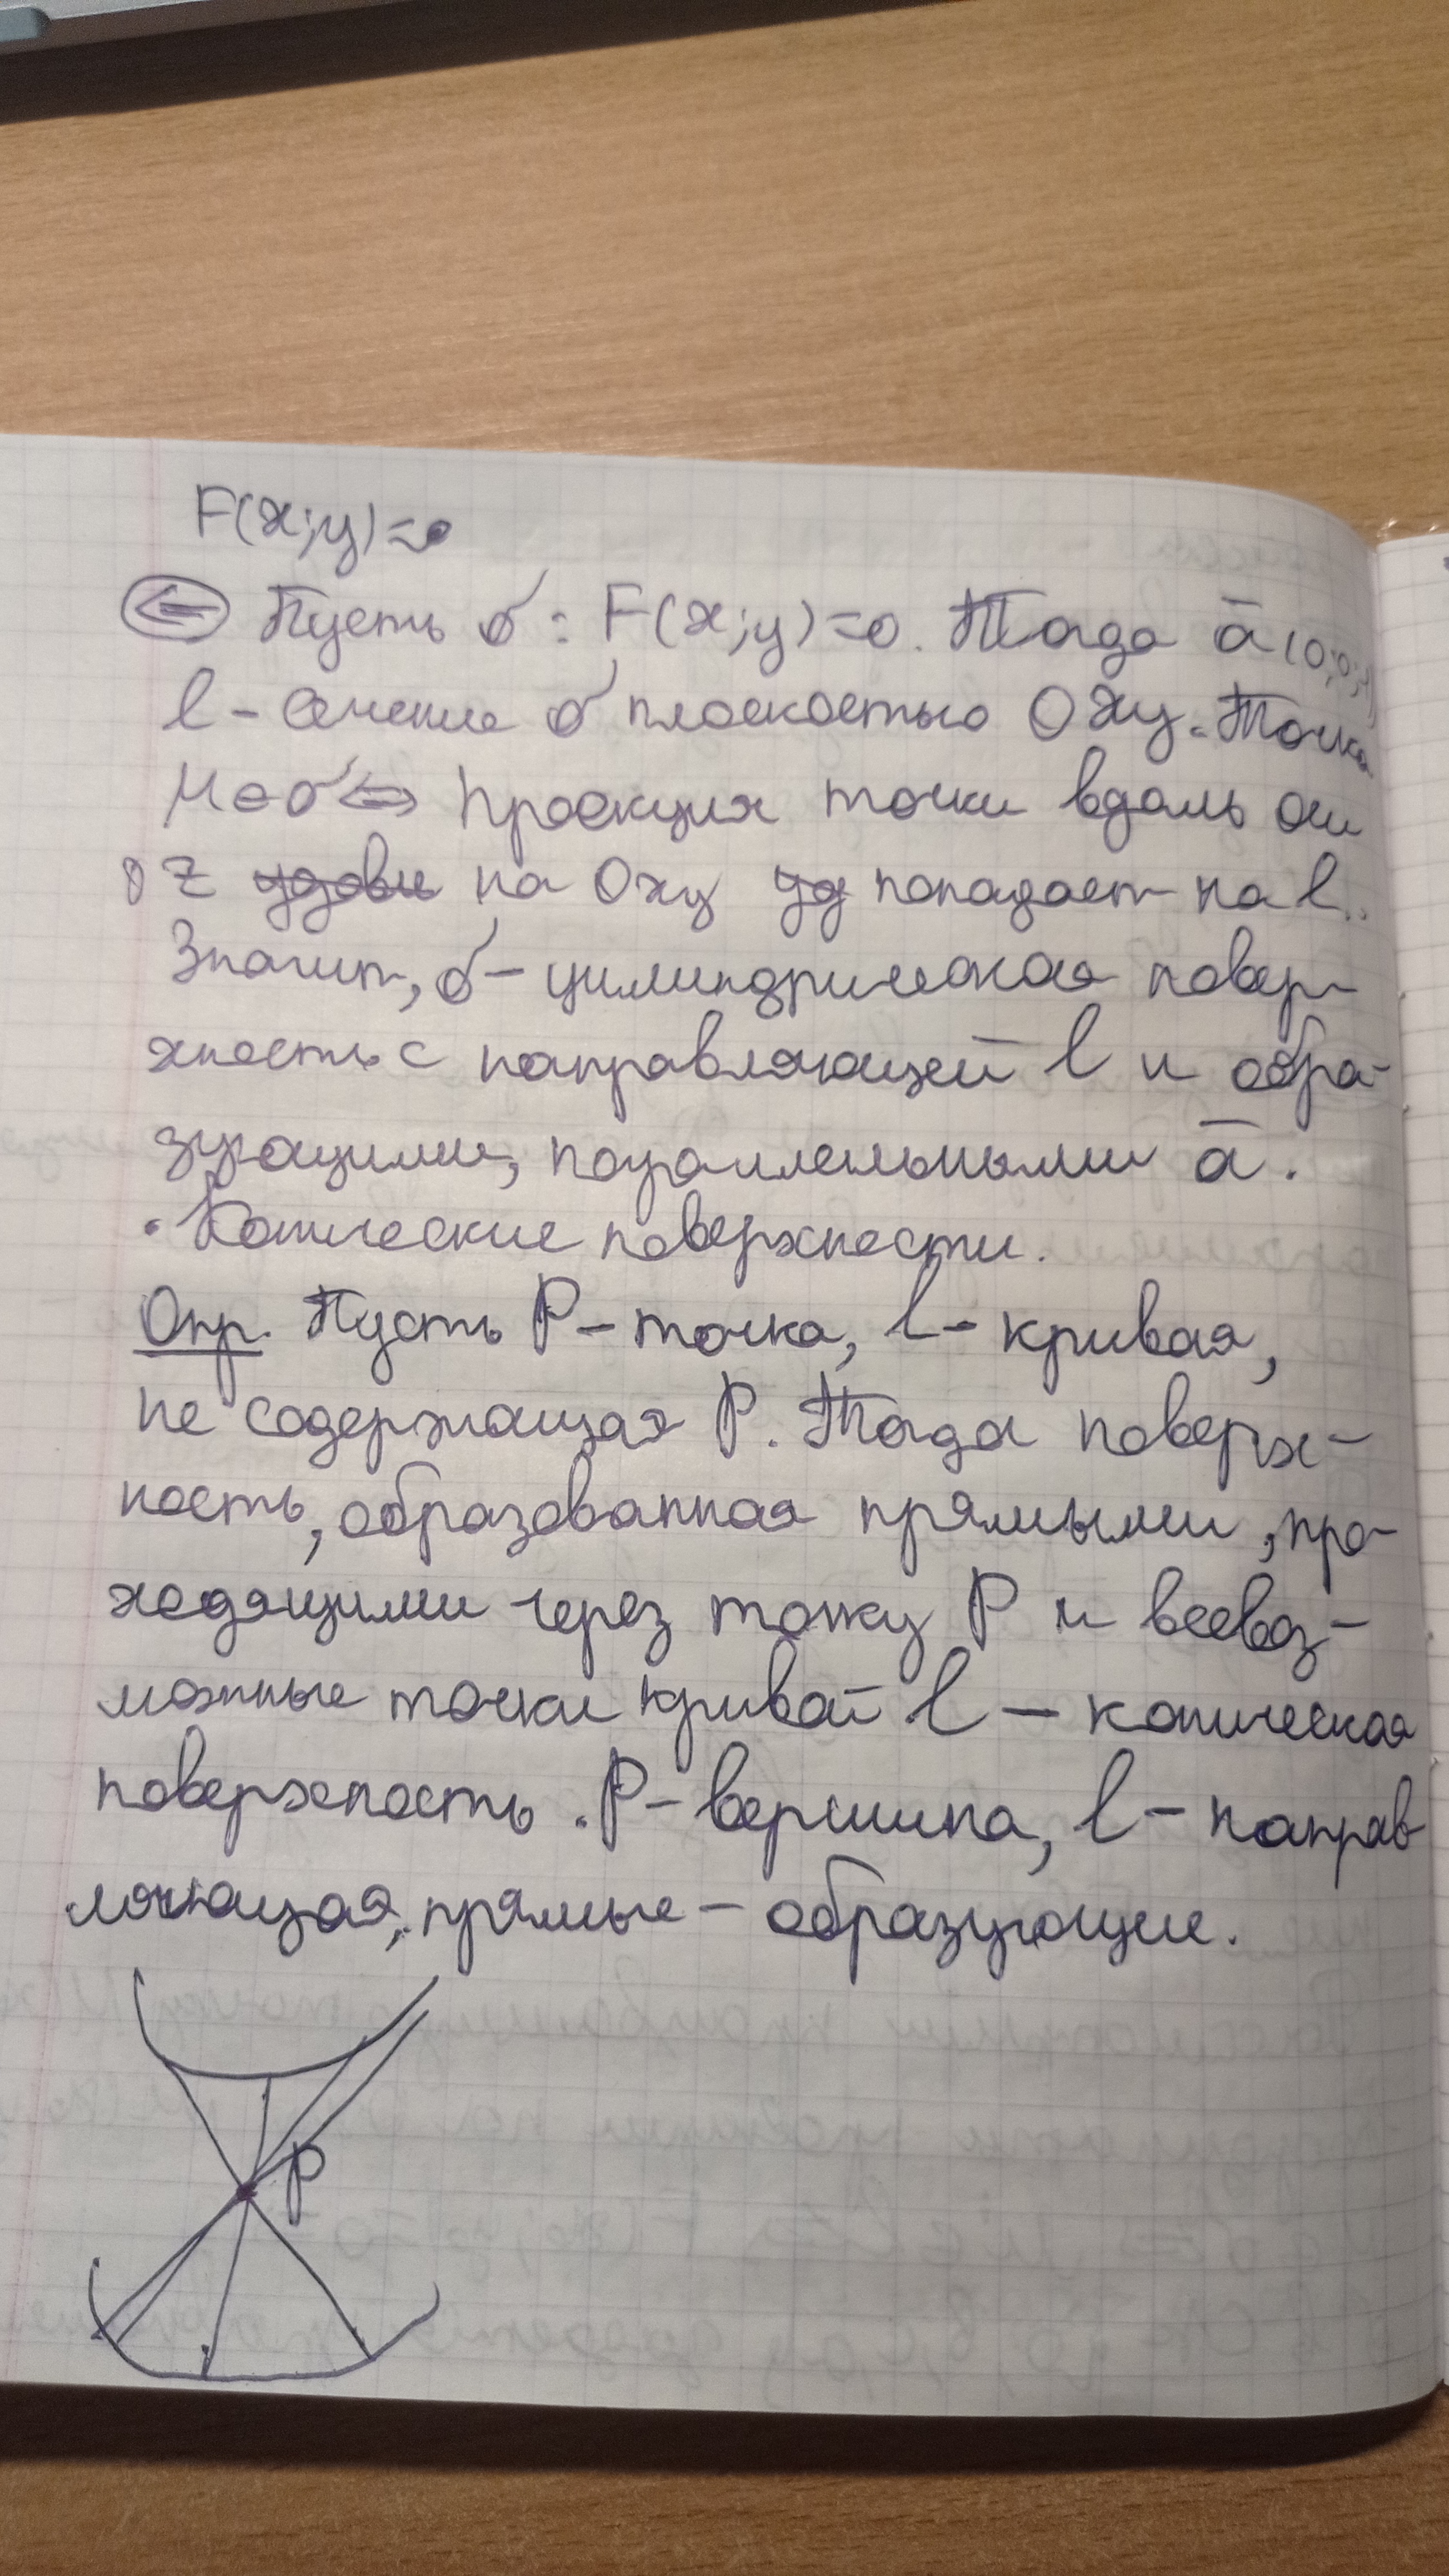 F(x;y)=0
⇐ Пусть σ: F(x;y)=0. Тогда a̅(0;0;1),
l - сечение σ плоскостью Oxy. Точка
M∈σ⇔ проекция точки вдоль оси
Oz на Oxy попадает на l.
Значит, σ - цилиндрическая повер-
хность с направляющей l и обра-
зующими, параллельными a̅.
• Конические поверхности.
Опр. Пусть P - точка, l - кривая,
не содержащая P. Тогда поверх-
ность, образованная прямыми, про-
ходящими через точку P и всевоз-
можные точки кривой l — коническая
поверхность. P - вершина, l - направ
ляющая, прямые - образующие.
P